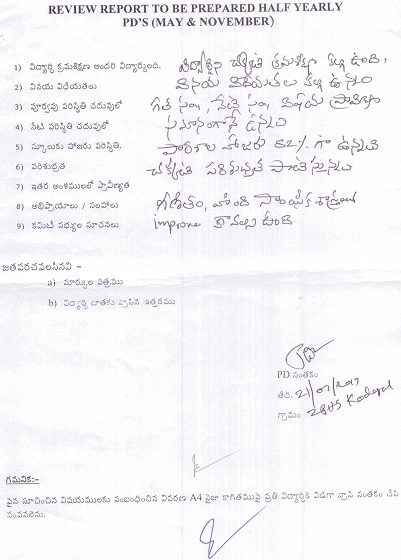 REVIEW REPORT TO BE PREPARED HALF YEARLY
PD'S (MAY & NOVEMBER)
1) విద్యార్థి క్రమశిక్షణ అందరి విద్యార్థులది. విద్యార్థిని చక్కటి క్రమశిక్షణ కల్గి ఉంది,
2) వినయ విధేయతలు వినయ విధేయతలు కల్గి ఉన్నది
3) పూర్వపు పరిస్థితి చదువులో గత సం,, నేటి సం,, విషయ
4) నేటి పరిస్థితి చదువులో సమానంగానే ఉన్నది
5) స్కూలుకు హాజరు పరిస్థితి. పాఠశాల హాజరు 82% గా ఉన్నది
6) పరిశుభ్రత చక్కటి పరిశుభ్రత పాటిస్తున్నది
7) ఇతర అంశములలో ప్రావీణ్యత
8) అభిప్రాయాలు / సలహాలు గణితం, హింది సాంఘిక శాస్త్రాలలో
9) కమిటీ సభ్యుల సూచనలు improve కావలసి ఉంది
జతపరచవలసినవి -
a) మార్కుల పత్రము
b) విద్యార్థి దాతకు వ్రాసిన ఉత్తరము
PD సంతకం
తేది. 21/07/2017
గ్రామం
గమనిక:-
పైన సూచించిన విషయములకు సంబంధించిన వివరణ A4 సైజు కాగితముపై ప్రతి విద్యార్థికి విడిగా వ్రాసి సంతకం చేసి
పంపవలెను.